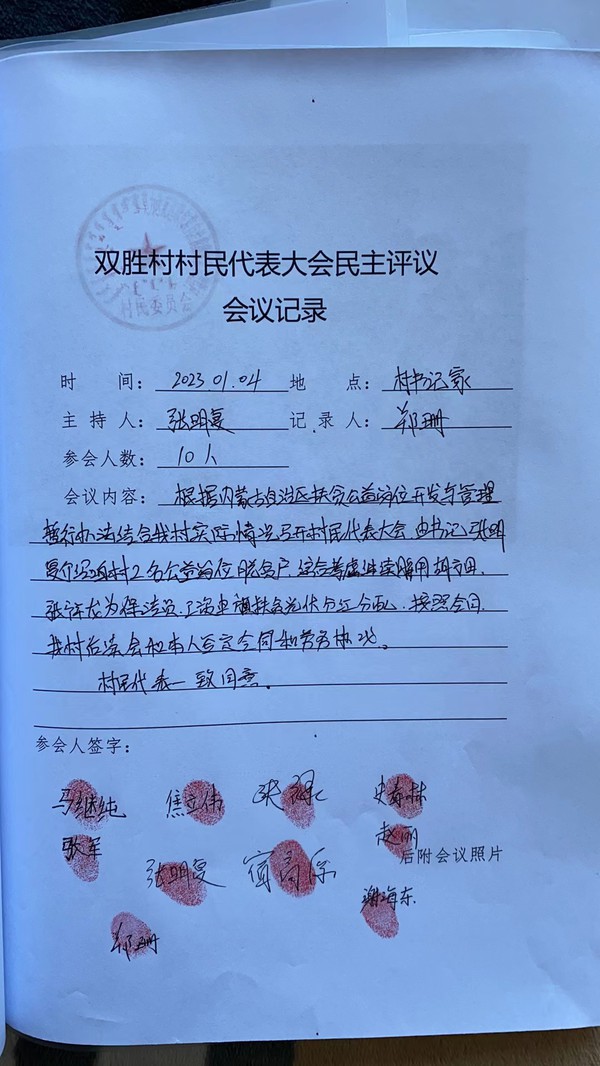 村民委员会
双胜村村民代表大会民主评议
会议记录
时 间： 2023.01.04 地 点： 村书记家
主 持 人： 张明复 记 录 人： 郑珊
参会人数： 10人
会议内容： 根据内蒙古自治区扶贫公益岗位开发与管理
暂行办法结合我村实际情况召开村民代表大会.由书记张明
复介绍我村2名公益岗位脱贫户.综合考虑继续聘用
为保洁员.了 扶贫光伏分红分配.按照合同.
我村 和本人签定合同和劳务协议。
村民代表一致同意。
参会人签字：
马继纯 焦立伟 张 史春林
张军 赵丽
后附会议照片
张明复
谢海东
郑珊